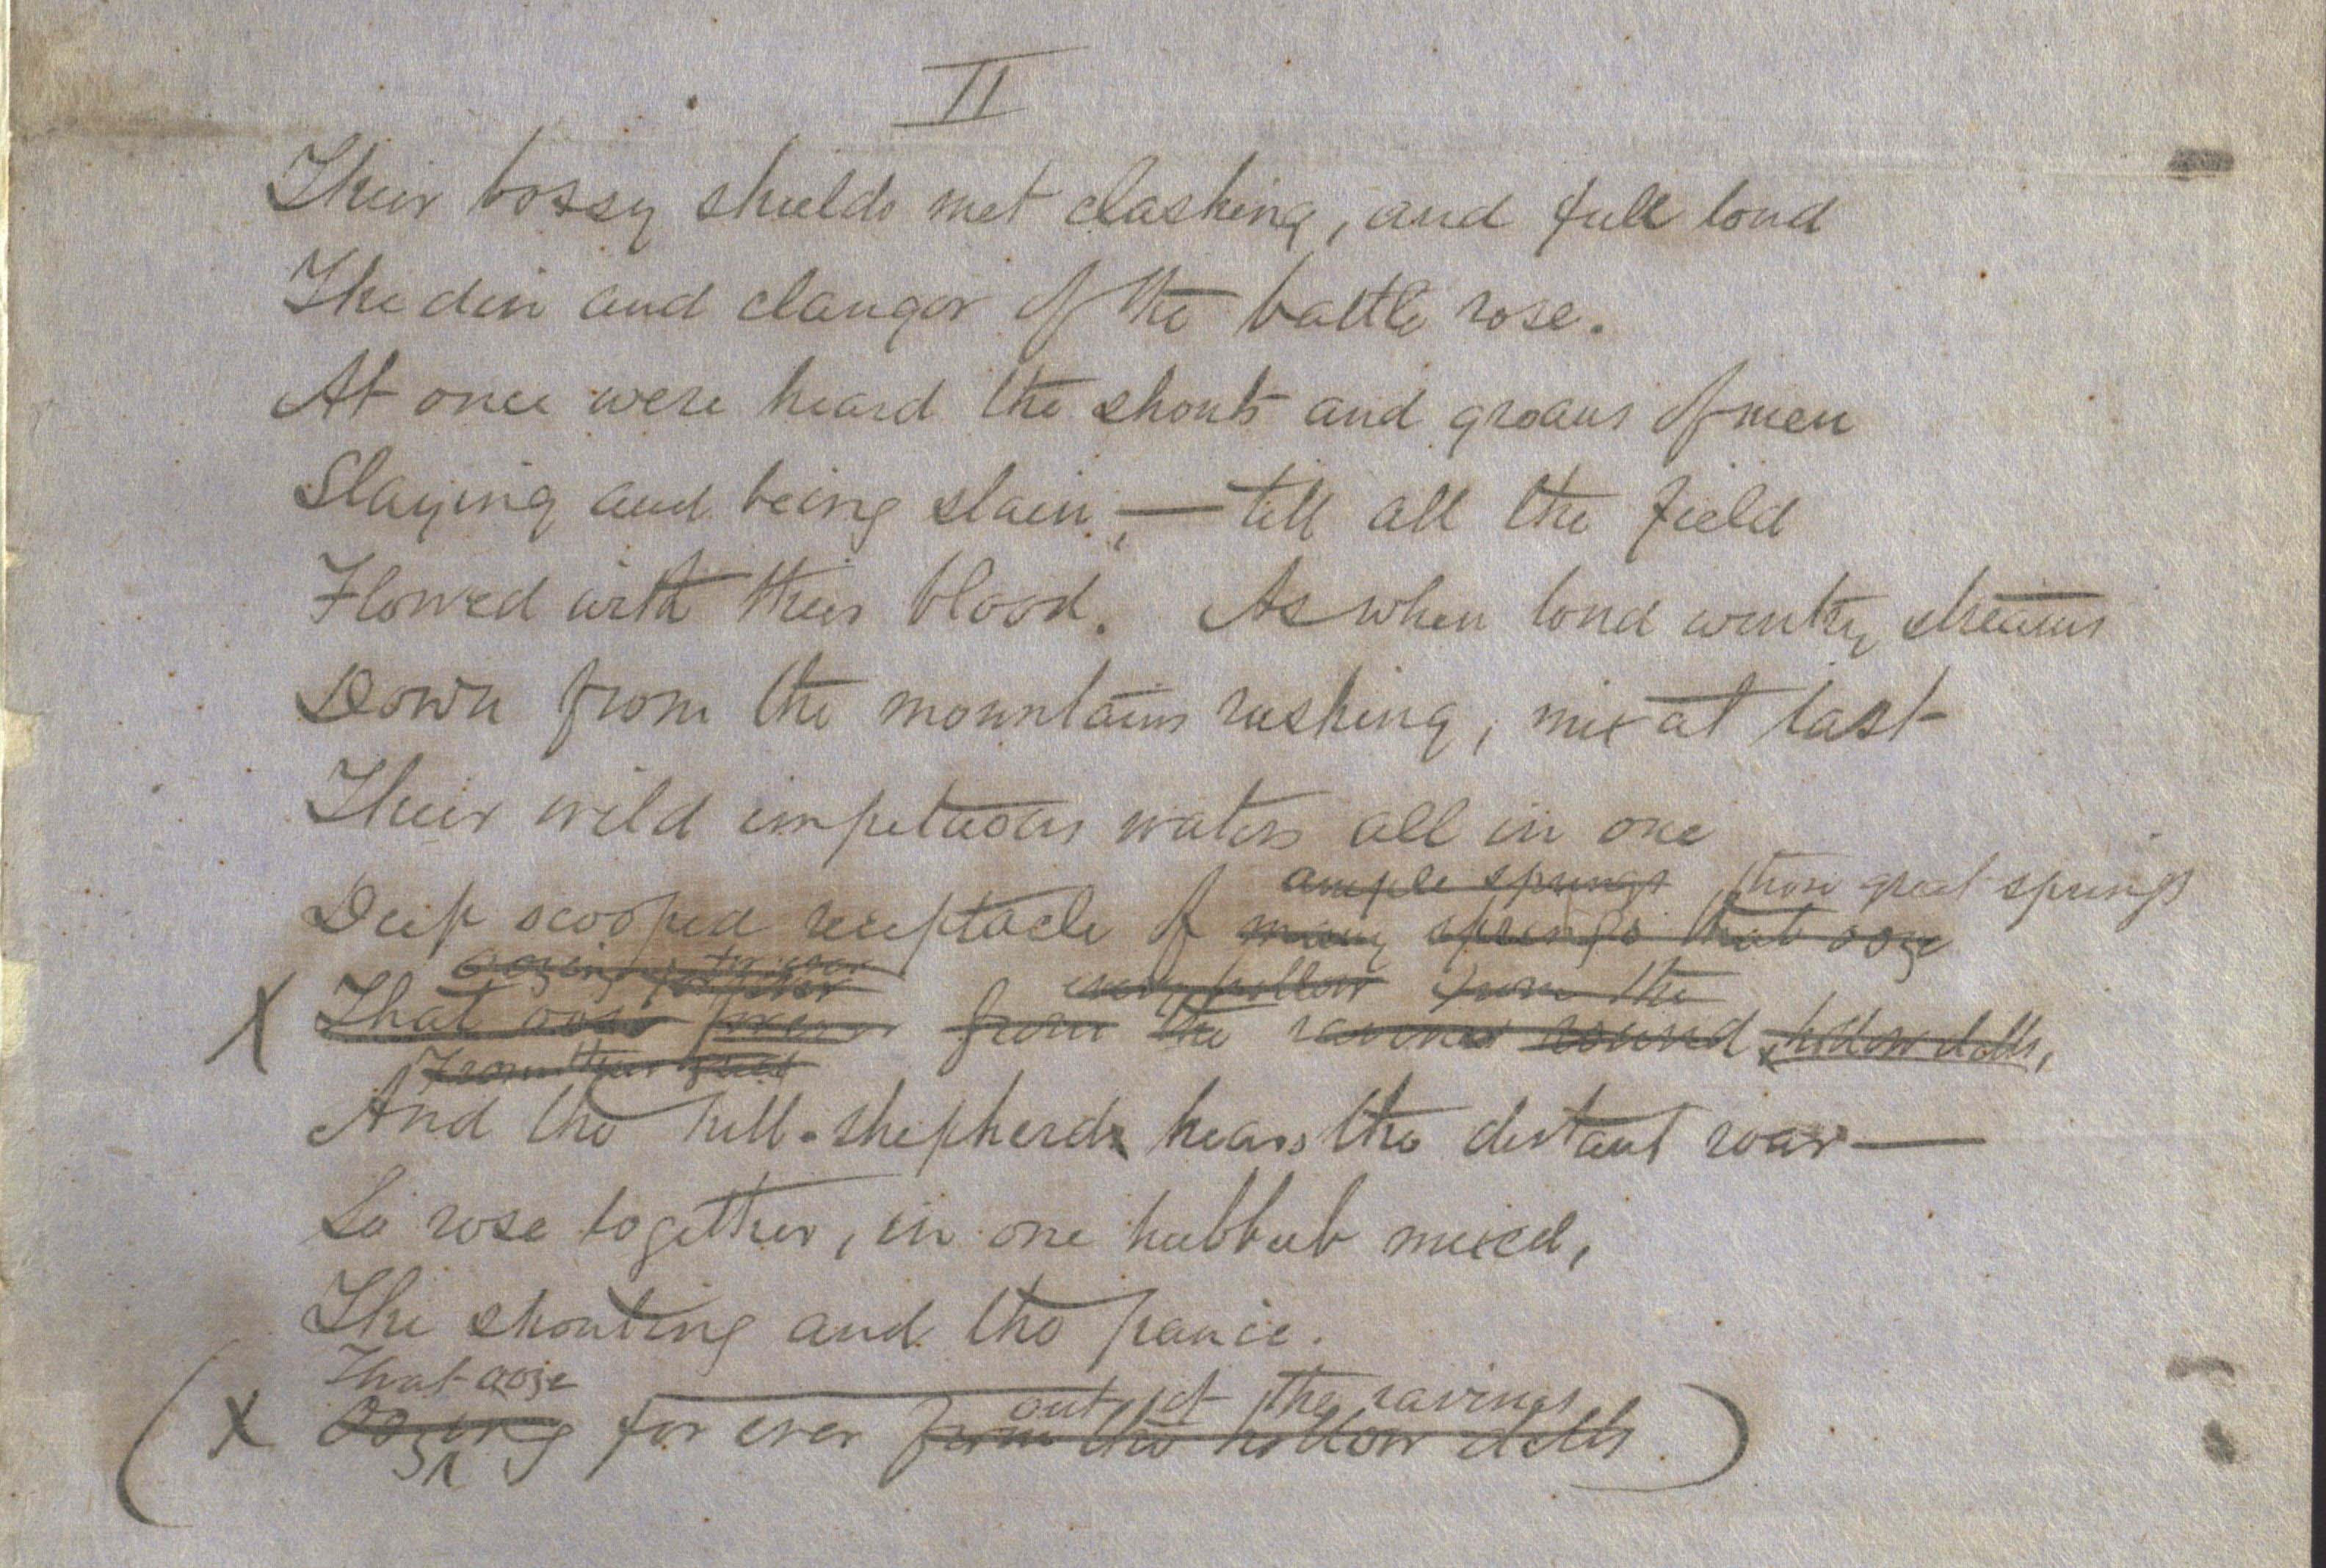 II
Their bossy shields met clashing, and full loud
The din and clangor of the battle rose.
At once were heard the shouts and groans of men
Slaying and being slain; — till all the field
Flowed with their blood. As when loud wintry streams
Down from the mountains rushing, mix at last
Their wild impetuous waters all in one
ample springs those great springs
Deep scooped receptacle of many springs that ooze
oozing for ever
for ever
every hollow from the
X That ooze forever from the ravines round hollow dells,
From their
And the hill-shepherd hears the distant roar —
So rose together, in one hubbub mixed,
The shouting and the panic.
That ooze out of the ravines
(X Oozing for ever from the hollow dells)